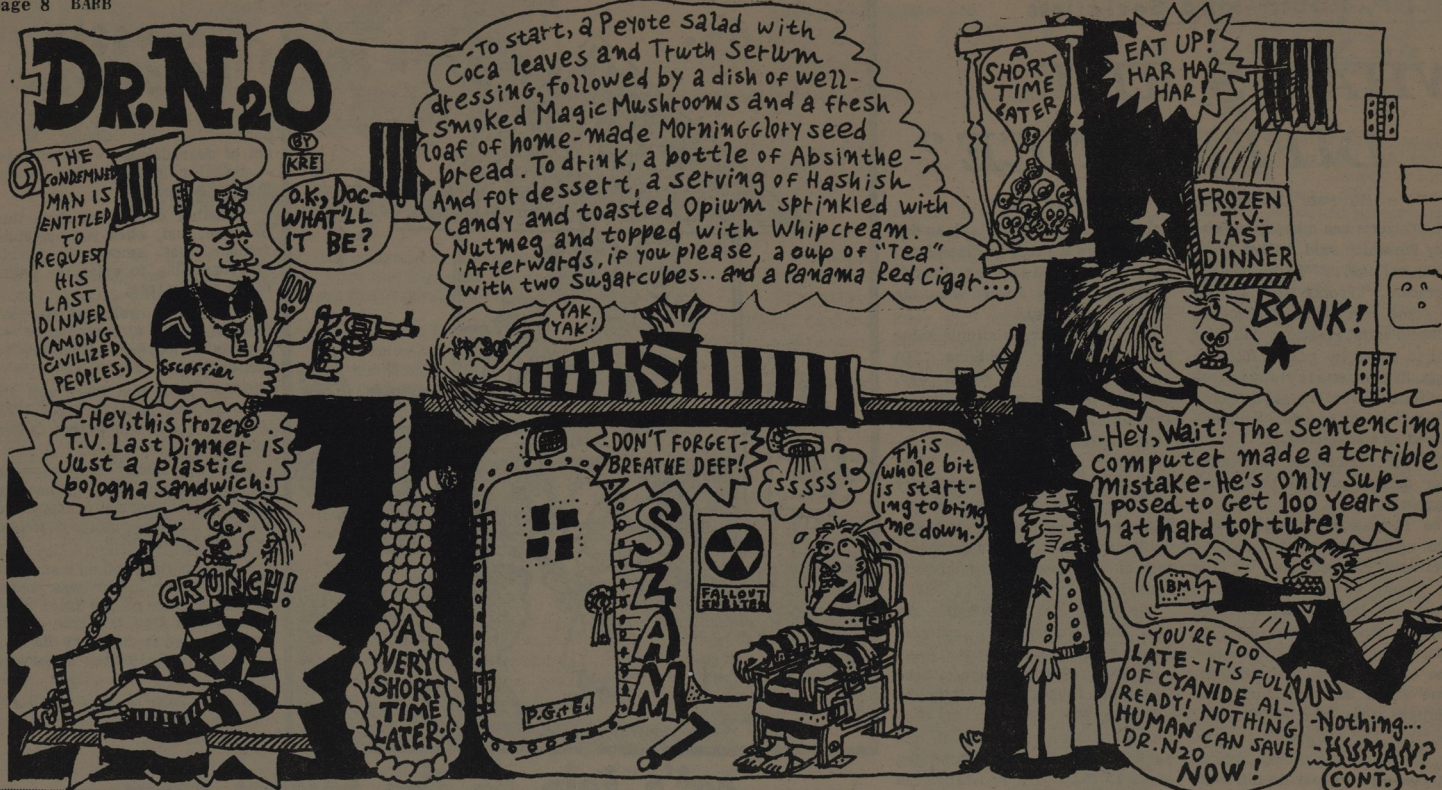 age 8 BARB
DR. N2O
BY
KRE
THE
CONDEMNED
MAN IS
ENTITLED
TO
REQUEST
HIS
LAST
DINNER
(AMONG
CIVILIZED
PEOPLES.)
O.K., DOC-
WHAT'LL
IT BE?
Escoffier
-To start, a Peyote salad with
Coca leaves and Truth Serum
dressing, followed by a dish of well-
smoked Magic Mushrooms and a fresh
loaf of home-made Morningglory seed
bread. To drink, a bottle of Absinthe-
And for dessert, a serving of Hashish
Candy and toasted Opium sprinkled with
Nutmeg and topped with Whipcream.
Afterwards, if you please, a cup of "Tea"
with two Sugarcubes.. and a Panama Red Cigar...
YAK
YAK!
A
SHORT
TIME
LATER
EAT UP!
HAR HAR
HAR!
FROZEN
T.V.
LAST
DINNER
BONK!
-Hey, this Frozen
T.V. Last Dinner is
Just a plastic
bologna sandwich!
CRUNCH!
A
VERY
SHORT
TIME
LATER.
DON'T FORGET-
BREATHE DEEP!
SLAM
P.G.&E.
FALLOUT
SHELTER
SSSSS!
This
whole bit
is start-
ing to bring
me down.
-Hey, Wait! The sentencing
computer made a terrible
mistake- He's only sup-
posed to get 100 Years
at hard torture!
IBM
-YOU'RE TOO
LATE- IT'S FULL
OF CYANIDE AL-
READY! NOTHING
HUMAN CAN SAVE
DR. N2O
NOW!
-Nothing...
-HUMAN?
(CONT.)